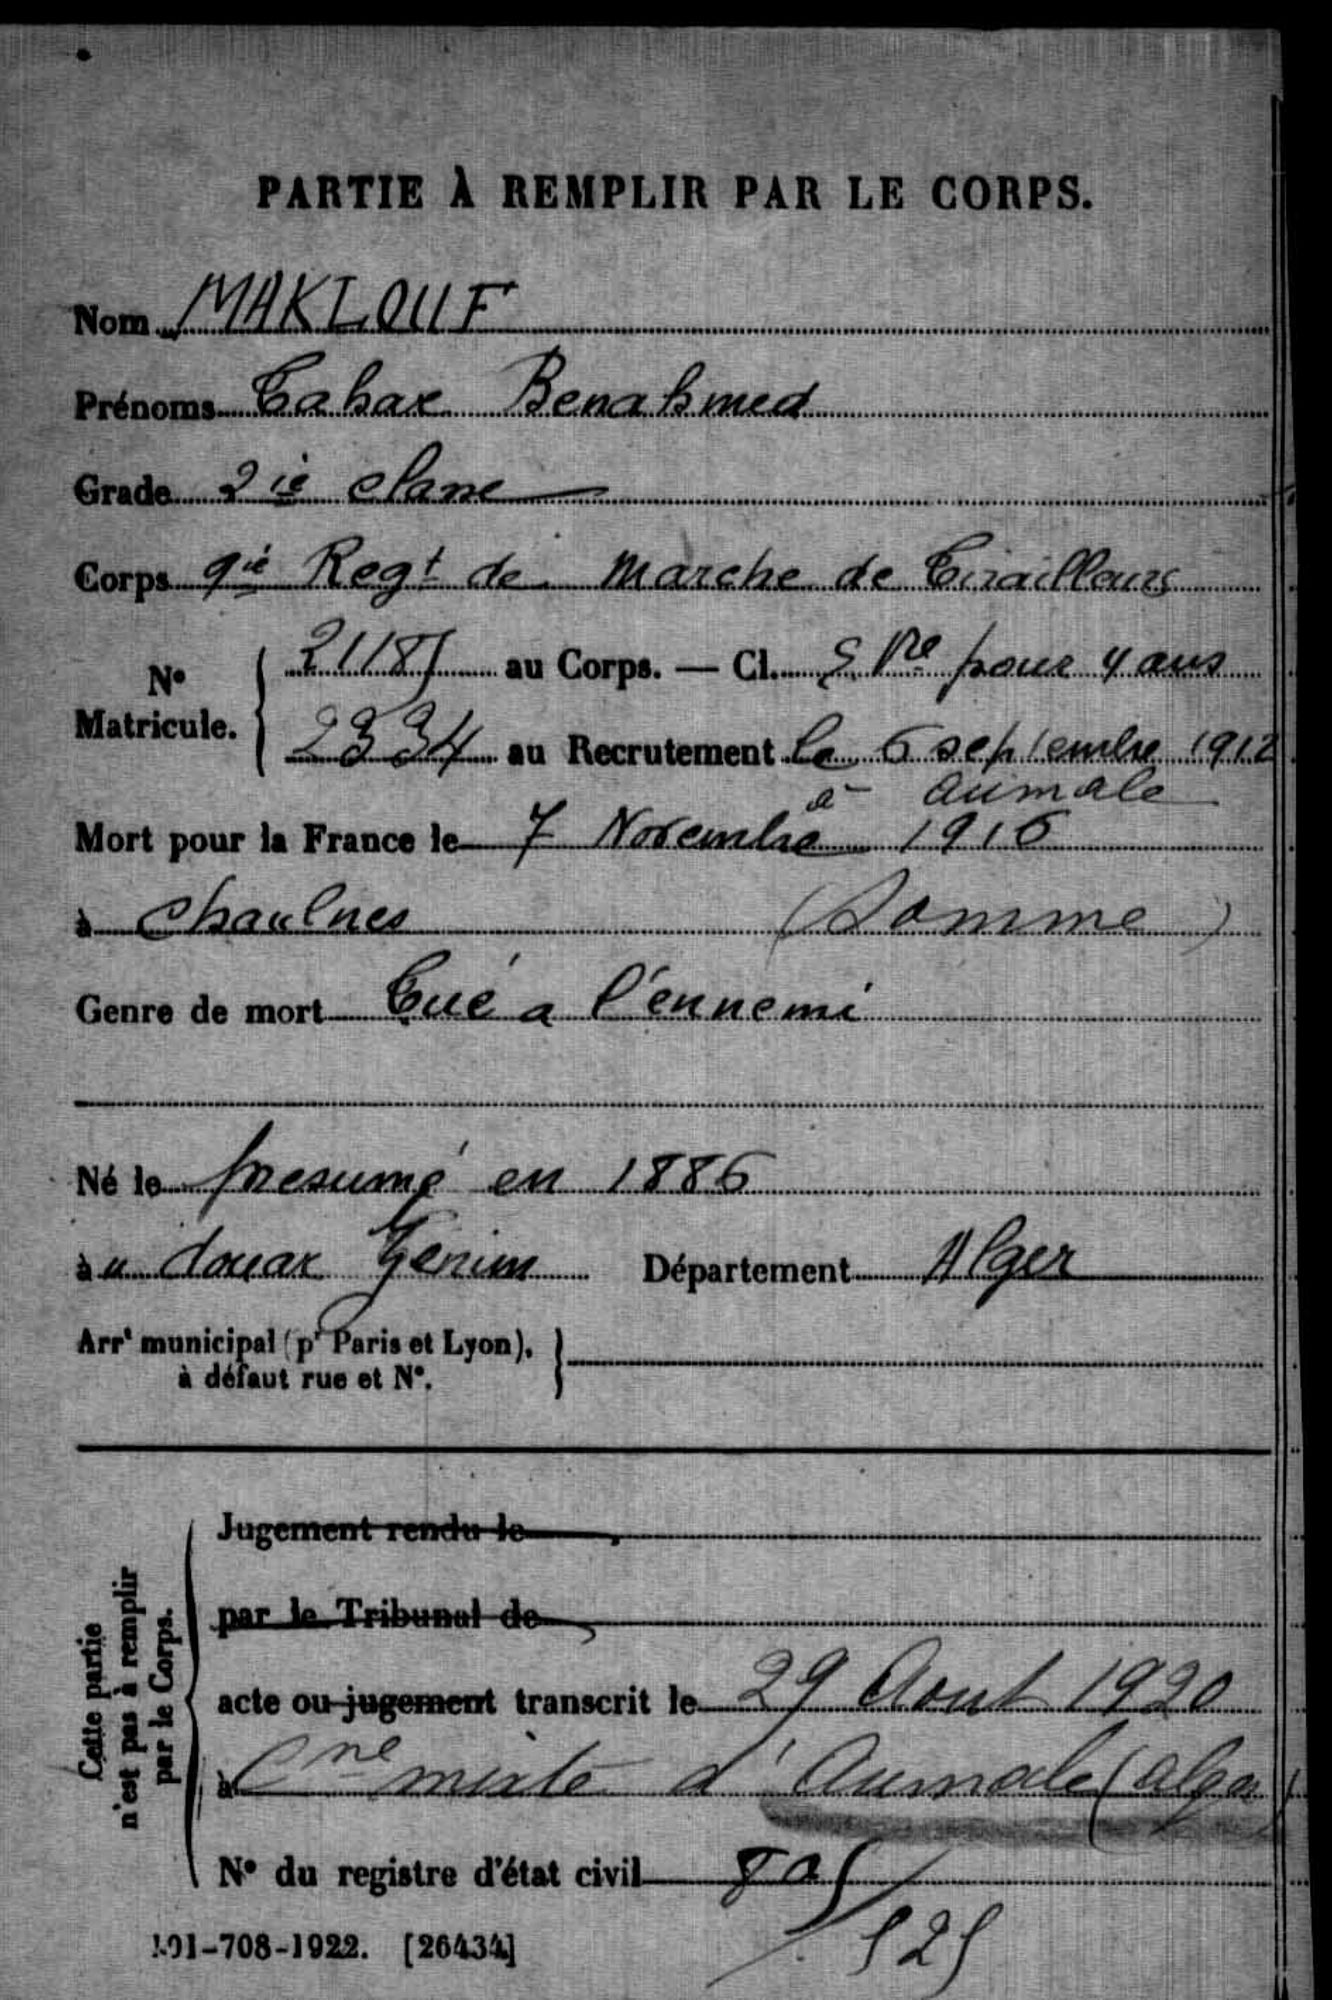 PARTIE À REMPLIR PAR LE CORPS.
Nom MAKLOUF
Prénoms Tahar Benahmed
Grade 2ie classe
Corps 9ie Regt de Marche de Tirailleurs
No Matricule. 21185 au Corps. — Cl. S. Vre pour 4 ans
2334 au Recrutement le 6 septembre 1912
à aumale
Mort pour la France le 7 Novembre 1916
à Chaulnes (Somme)
Genre de mort Tué a l'ennemi
Né le présumé en 1886
àu douar Département Alger
Arrt municipal (pr Paris et Lyon), à défaut rue et No.
Cette partie n'est pas à remplir par le Corps.
Jugement rendu le
par le Tribunal de
acte ou jugement transcrit le 29 Aout 1920
à Cne mixte d'Aumale (alger)
No du registre d'état civil 805
/525
101-708-1922. [26434]